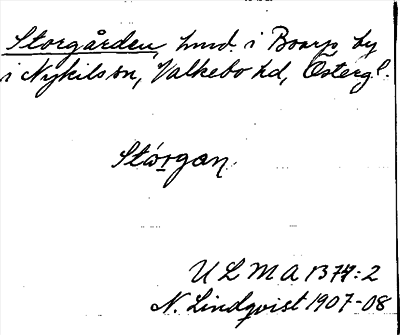 Storgården, hmd. i Boarps by
i Nykils sn, Valkebo hd, Östergl.
Stórgan.
ULMA 1377:2
N. Lindqvist 1907-08